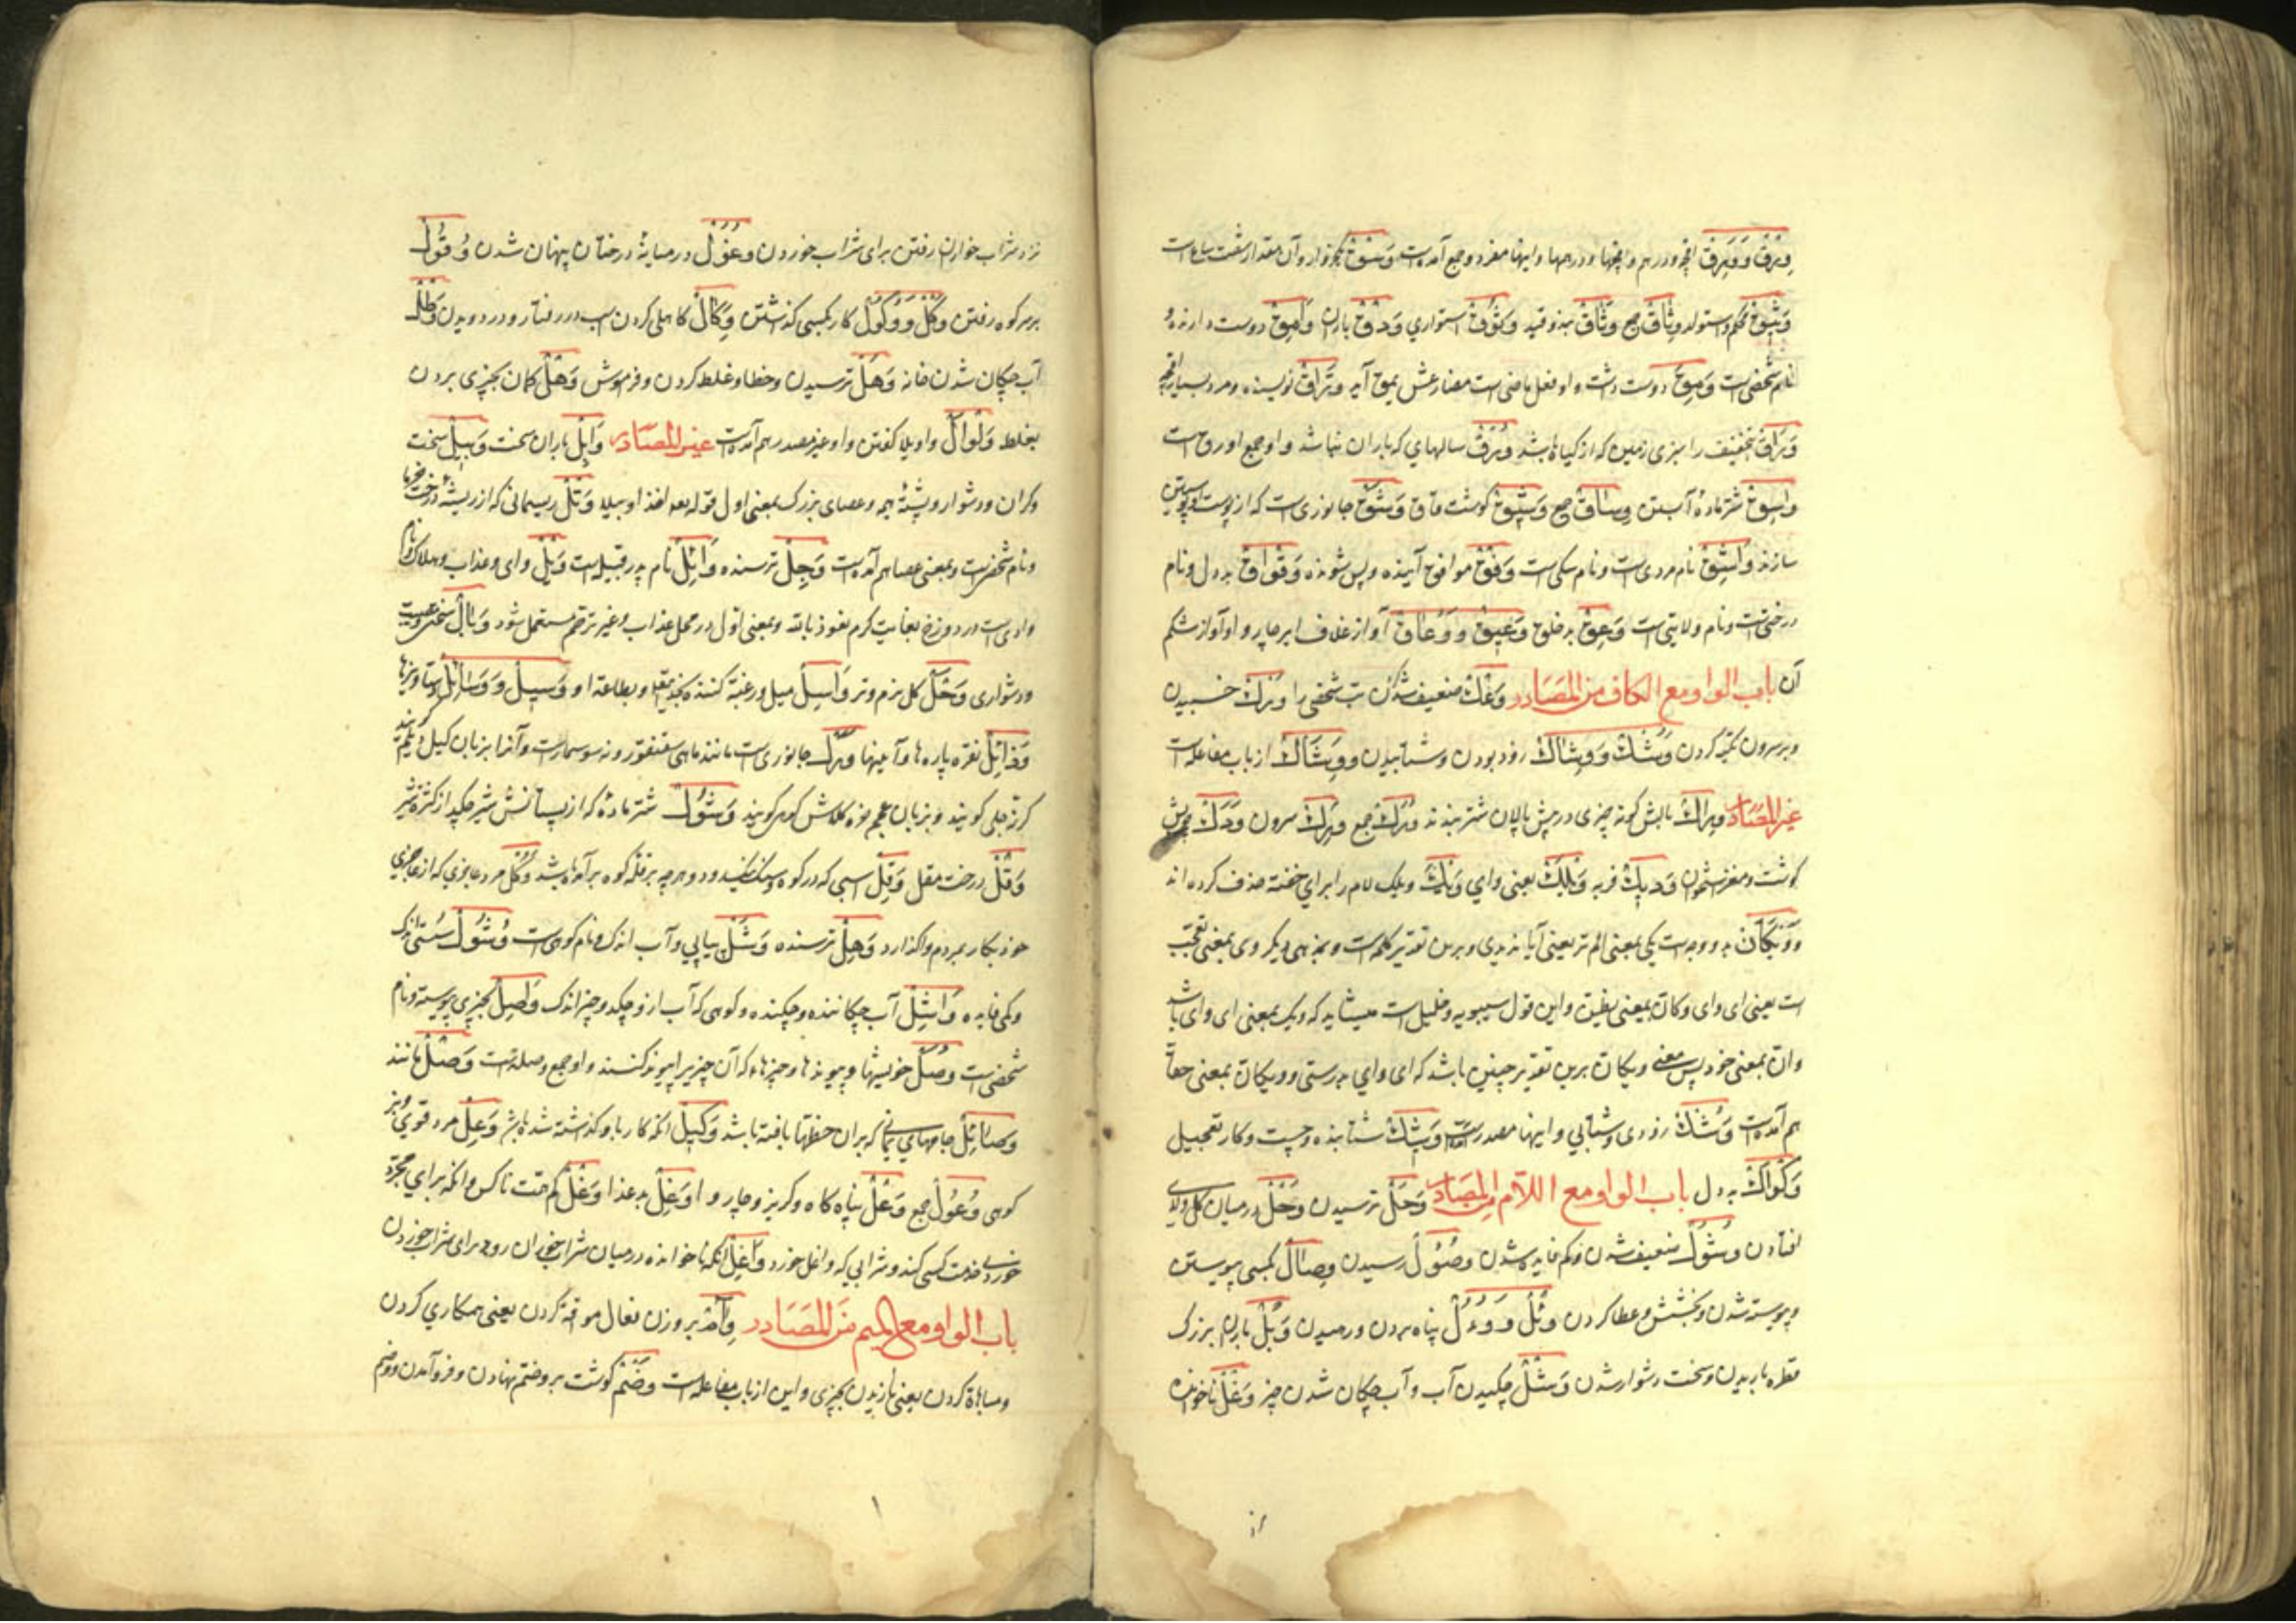 وِرْقٌ وَ وَرِقٌ اقچه و درهم و اقچها و درهمها و اینها مفرد و جمع آمده است وَسْقٌ یک خروار و آن مقدار شصت صاع است
وَثِیْقٌ محکم و استوار وِثَاقٌ جمع وَثَاقٌ بند و قید وُثُوْقٌ استواری وَدْقٌ باران وَامِقٌ دوست دارنده و
نام شخصی است وَمِقَ دوست داشت و او فعل ماضی است مضارعش یمق آید وَرَّاقٌ نویسنده و مرد بسیار اقچه
وَرَاقٌ بتخفیف را سبزی زمین که از گیاه باشد وُرْقٌ سالهای که باران نباشد و او جمع اورق است
وَاسِقٌ شتر ماده آبستن وِسَاقٌ جمع وَشِیْقٌ گوشت قاق وَشَقٌ جانوری است که از پوست او پوستین
سازند وَاشِقٌ نام مردی است و نام سکی است وَفْقٌ موافق آینده و پس شونده وَقْوَاقٌ بد دل و نام
درختی است و نام ولایتی است وَعِقٌ بد خلق وَعِیْقٌ وَ وُعَاقٌ آواز غلاف ایر چاروا و آواز شکم
آن باب الواو مع الکاف من المصادر وَعْكٌ ضعیف شدن تب شخصی را وَرْكٌ خسبیدن
و بر سرون تکیه کردن وَشْكٌ وَ وِشَاكٌ زود بودن و شتابیدن وَوِشَاكٌ از باب مفاعله است
غیر المصادر وِرَاكٌ بالش کونه چیزی در پیش پالان شتر بندند وُرُكٌ جمع وَرِكٌ سرون وَدَكٌ چربش
کوشت و مغز استخوان وَدِیْكٌ فربه وَیْلَكَ یعنی وای وَیْكَ ویلک لام را برای خفته حذف کرده اند
وَوَیْكَاَنَّ بدو وجه است یکی بمعنی الم تر یعنی آیا ندیدی و برین تقدیر کلمه است و بمذهبی دیکر وی بمعنی تعجب
است یعنی ای وای و کان بمعنی یظن و این قول سیبویه و خلیل است میشاید که ویک بمعنی ای وای باشد
وان بمعنی خود پس معنی ویکان برین تقدیر چنین باشد که ای وای بدرستی و ویکان بمعنی حقا
هم آمده است وَشْكٌ زودی و شتابی و اینها مصدر است وَشِیْكٌ شتابنده و چست و کار تعجیل
وَكْوَاكٌ بد دل باب الواو مع اللام من المصادر وَجَلٌ ترسیدن وَحَلٌ در میان کل و لای
افتادن وُشُوْلٌ ضعیف شدن و کم فایده شدن وُصُوْلٌ رسیدن وِصَالٌ بکسی پیوستن
و پیوسته شدن و بخشش و عطا کردن وَئْلٌ وَ وُءُوْلٌ پناه بردن و رسیدن وَبْلٌ باران بزرک
قطره باریدن و سخت دشوار شدن وَشْلٌ چکیدن آب و آب چکان شدن چیز وَغْلٌ ناخوانده
نزد شراب خواران رفتن برای شراب خوردن وُغُوْلٌ در میانهٔ درختان پنهان شدن وُقُوْلٌ
بر سر کوه رفتن وَكْلٌ وَ وُكُوْلٌ کار بکسی گذاشتن وِكَالٌ کاهلی کردن اسب در رفتار و در دویدن وَطْلٌ
آب چکان شدن خانه وَهَلٌ ترسیدن و خطا و غلط کردن و فرموش وَهْلٌ کمان بچیزی بردن
بغلط وَلْوَالٌ واویلا کفتن و او غیر مصدر هم آمده است غیر المصادر وَابِلٌ باران سخت وَبِیْلٌ سخت
و کران و دشوار و پشتهٔ هیمه و عصای بزرک بمعنی اول قوله تعالی اخذا وبیلا وَثْلٌ ریسمانی که از ریشهٔ درخت خرما
و نام شخصی است و بمعنی عصا هم آمده است وَجِلٌ ترسنده وَائِلٌ نام پدر قبیله است وَیْلٌ وای و عذاب و هلاک و نام
وادی است در دوزخ بغایت کرم نعوذ بالله و بمعنی اول در محل عذاب و غیر ترحم مستعمل شود وَبَالٌ سختی و مصیبت
و دشواری وَحَلٌ کل نرم و تر وَاسِلٌ میل و رغبت کننده بخدمتها و بطاعة او وَسِیْلٌ وَ وَسَائِلٌ دستاویزها
وَذَائِلٌ نقره پاره ها و آینها وَرَلٌ جانوری است مانند ماهی سقنقور و نه سوسمار است و آنرا بزبان کیل
کویند و بزبان عجم وَشُوْلٌ شتر ماده که از پستانش شیر چکید از کثرة شیر
وَقْلٌ درخت مقل وَقِلٌ اسپی که در کوه و سنک نیک دود و هر چه بر قله کوه بر آمده باشد وُكَلٌ مرد عاجزی که از عاجزی
خود بکار بمردم واکذارد وَهِلٌ ترسنده وَشَلٌ پیاپی و آب اندک و نام کوهی است وُشُوْلٌ سستی اندک
و کمی فایده وَاشِلٌ آب چکاننده و چکنده و کوهی که آب ازو چکد و چیز اندک وَصِیْلٌ بچیزی پیوسته و نام
شخصی است وُصَلٌ خویشیها و پیوندها و چیزها که آن چیز را پیوند کنند و او جمع وصله است وَصْلٌ مانند
وَصَائِلٌ جامهای یمانی که بران خطها بافته باشد وَكِیْلٌ آنکه کار باو گذاشته شده باشد وَعِلٌ مرد قوی و بز
کوهی وُعُوْلٌ جمع وَعْلٌ پناه گاه و کریز و چاروا وَغِلٌ بد غذا وَغْلٌ کم همت ناکس و آنکه برای مجرد
خوردن خدمت کسی کند و شرابی که واغل خورد وَاغِلٌ آنکه ناخوانده در میان شراب خوران رود برای شراب خوردن
باب الواو مع المیم من المصادر وِآمٌ بر وزن فعال موافقة کردن یعنی همکاری کردن
و مباهاة کردن یعنی نازیدن بچیزی و این از باب مفاعله است وَضْمٌ کوشت بر وضم نهادن و فرو آمدن و وضم